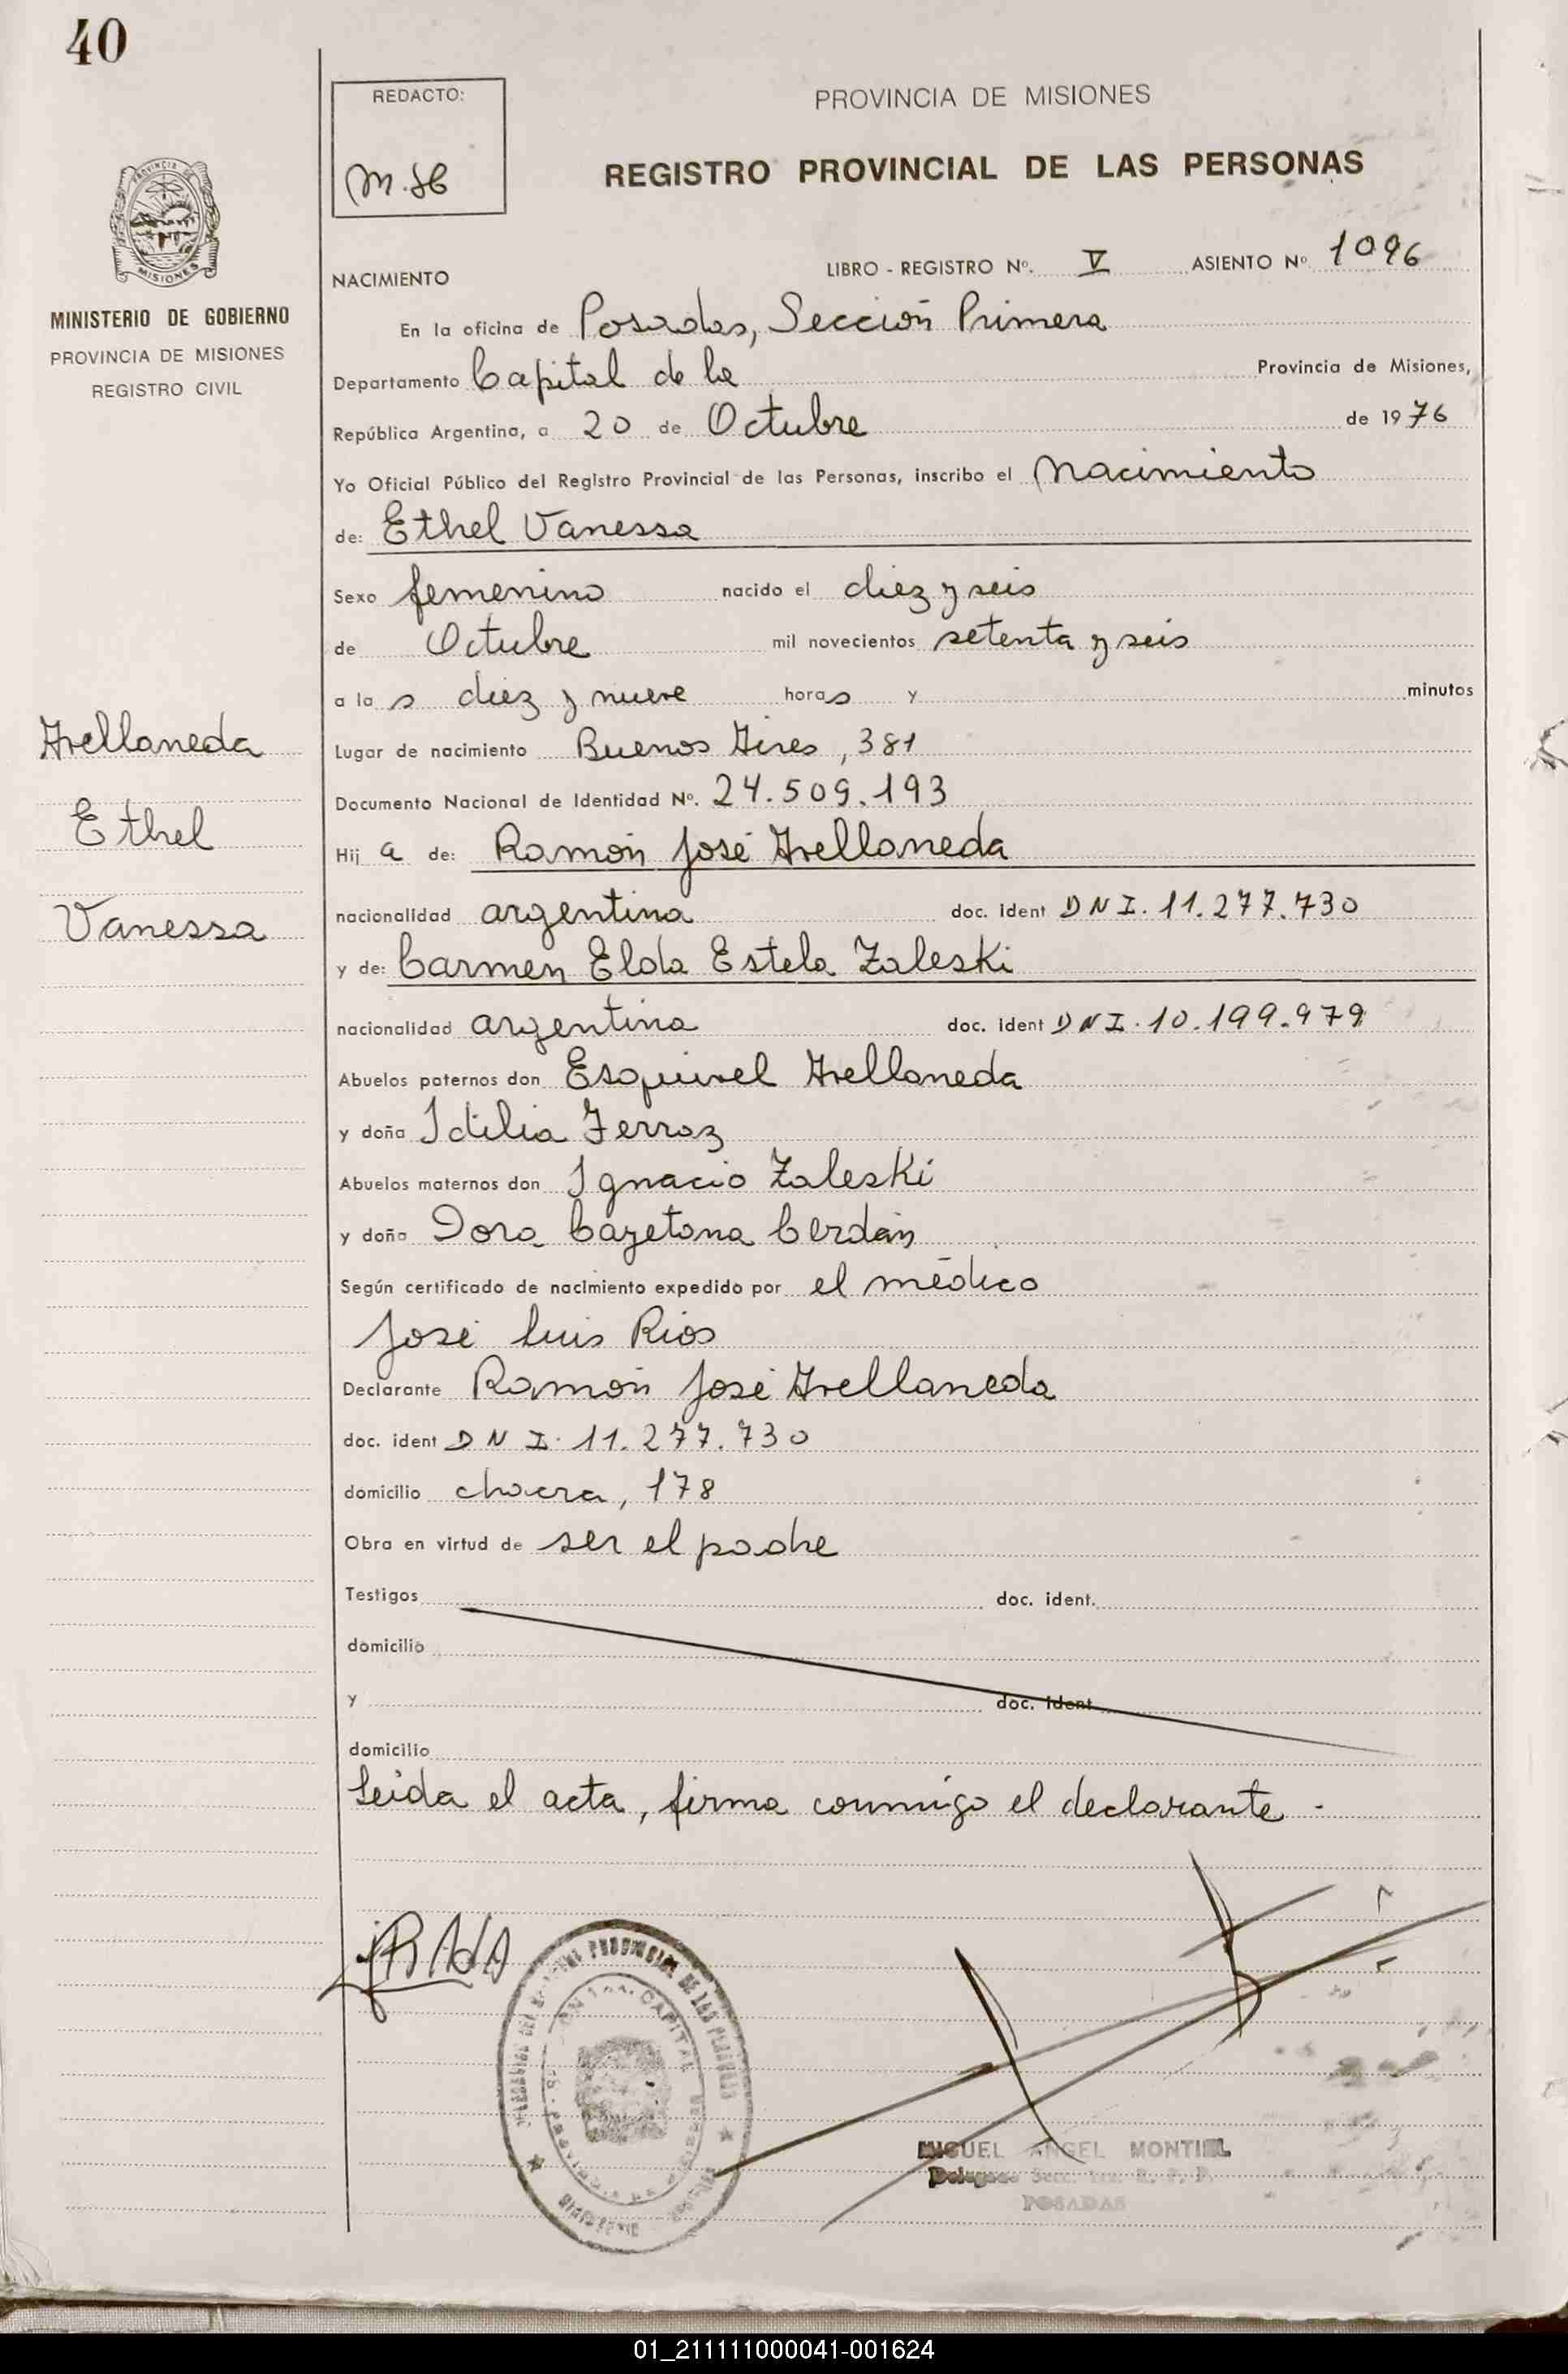 40
REDACTO:
PROVINCIA DE MISIONES
REGISTRO PROVINCIAL DE LAS PERSONAS
PROVINCIA DE
MISIONES
MINISTERIO DE GOBIERNO
PROVINCIA DE MISIONES
REGISTRO CIVIL
NACIMIENTO LIBRO - REGISTRO Nº. V ASIENTO Nº 1096
En la oficina de Posadas, Sección Primera
Departamento Capital de la Provincia de Misiones,
República Argentina, a 20 de Octubre de 1976
Yo Oficial Público del Registro Provincial de las Personas, inscribo el Nacimiento
de: Ethel Vanessa
Sexo femenino nacido el diez y seis
de Octubre mil novecientos setenta y seis
a la s diez y nueve horas y minutos
Avellaneda
Lugar de nacimiento Buenos Aires, 381
Documento Nacional de Identidad Nº. 24.509.193
Ethel
Hij a de: Ramón José Avellaneda
Vanessa
nacionalidad argentina doc. ident DNI. 11.277.730
y de: Carmen Elda Estela Zaleski
nacionalidad argentina doc. ident DNI. 10.199.979
Abuelos paternos don Esquivel Avellaneda
y doña Idilia Ferraz
Abuelos maternos don Ignacio Zaleski
y doña Dora Cayetana Cerdán
Según certificado de nacimiento expedido por el médico
José Luis Rios
Declarante Ramón José Avellaneda
doc. ident DNI. 11.277.730
domicilio chacra, 178
Obra en virtud de ser el padre
Testigos doc. ident.
domicilio
y doc. ident
domicilio
Leida el acta, firma conmigo el declarante.-
CAPITAL
MIGUEL ANGEL MONTIEL
Delegado Secc. 1ra. R. P. P.
POSADAS
01_211111000041-001624